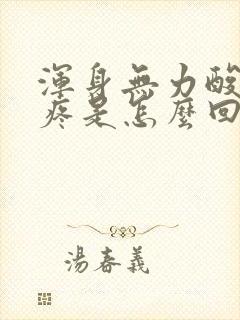 渾身無力酸
疼是怎麼回
湯春義